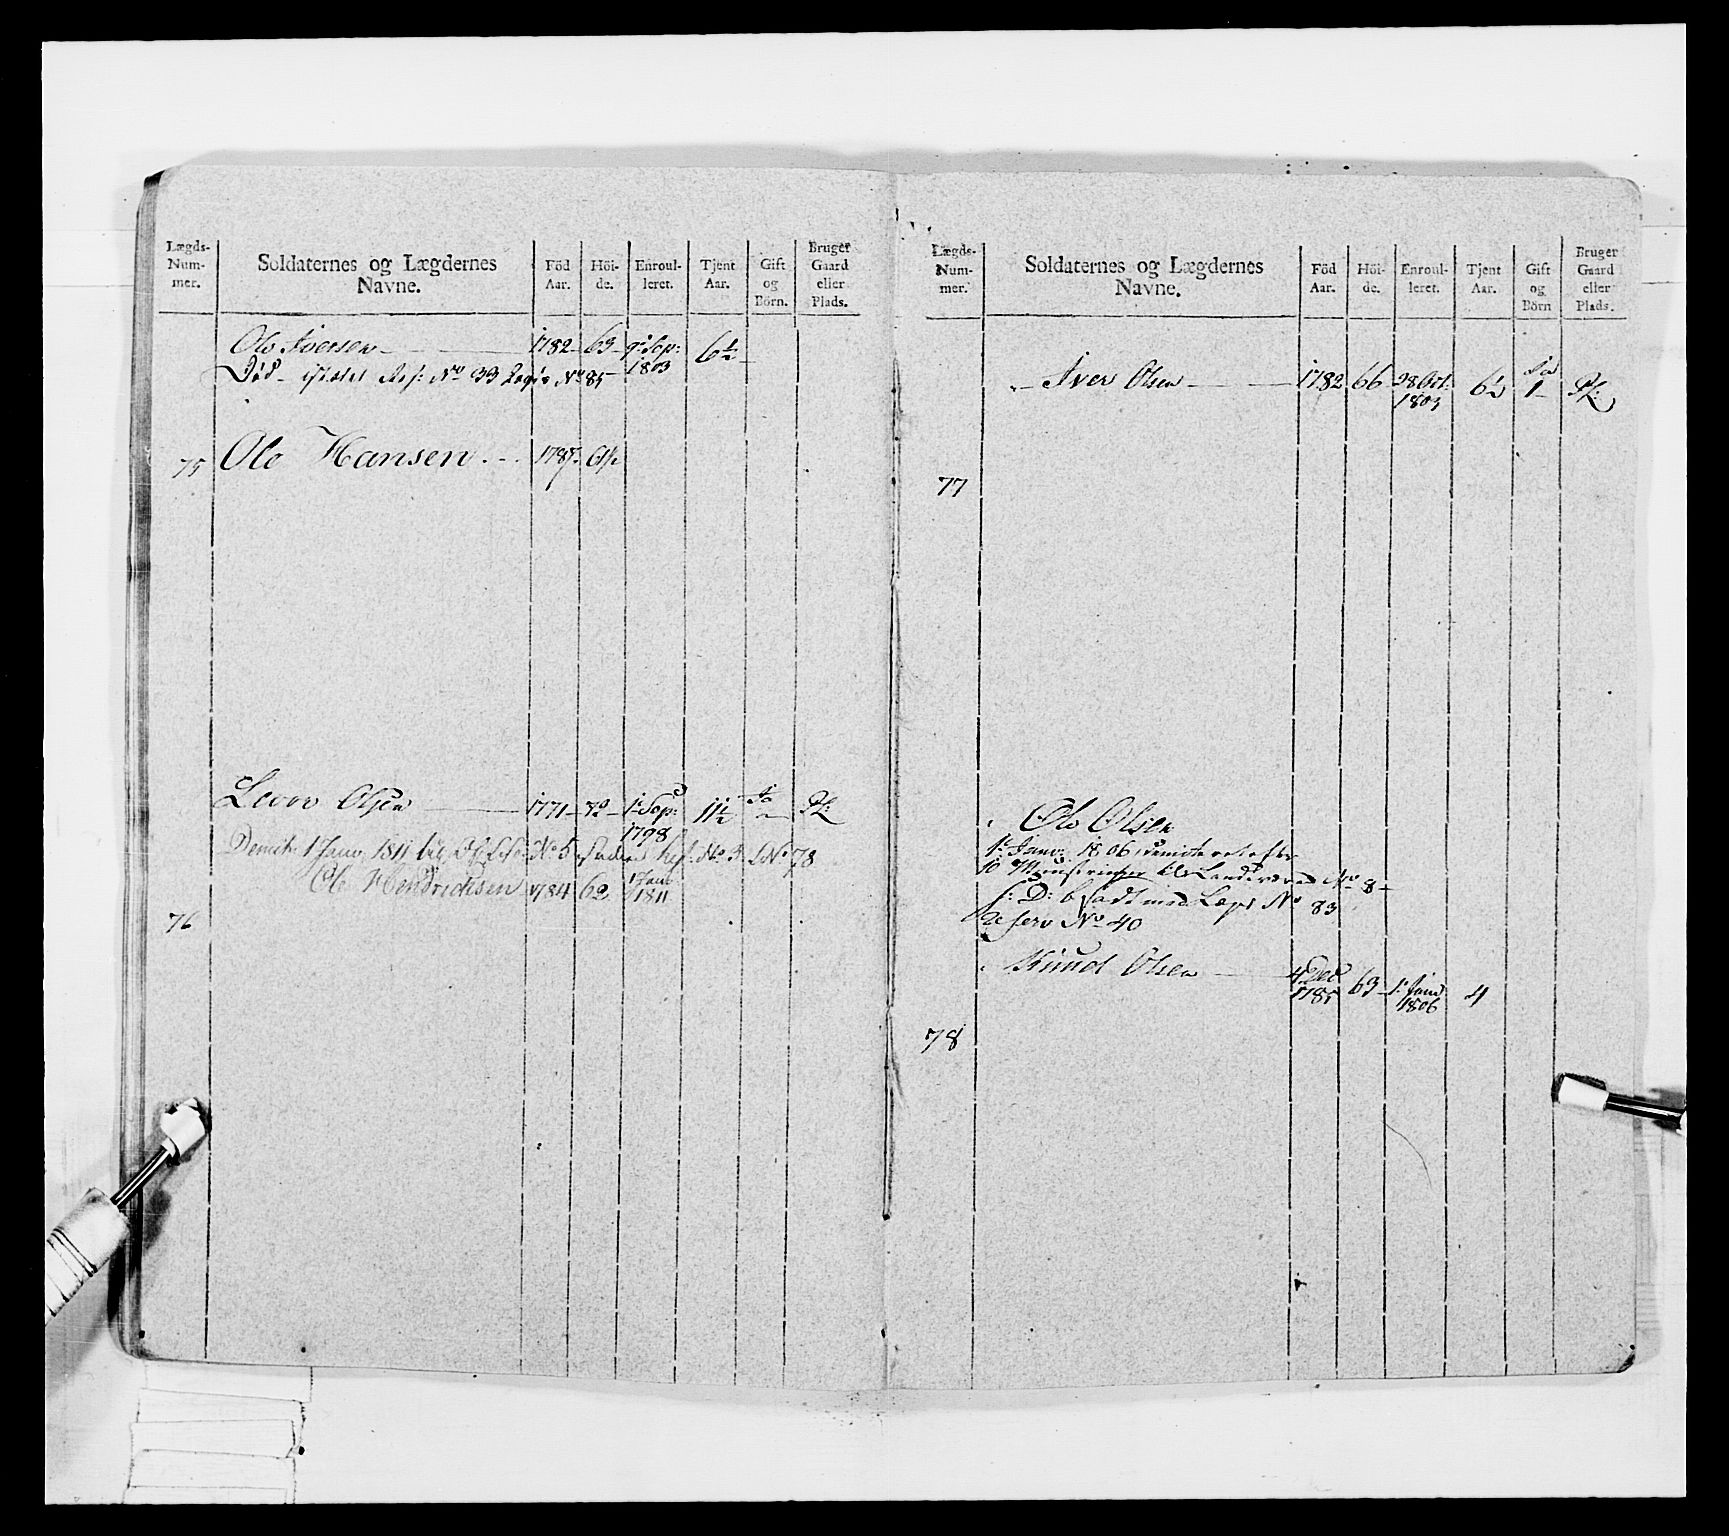 Lægds-
Num-
mer.
Soldaternes og Lægdernes
Navne.
Föd
Aar.
Höi-
de.
Enroul-
leret.
Tjent
Aar.
Gift
og
Börn.
Bruger
Gaard
eller
Plads.
Ole Iversen 1782 63 9de Sep: 1803 6½
Död istædet Res: No 33 Lægd No 85
75 Ole Hansen 1787 61½
Olsen 1771 70 1e Sep: 1798 11½ Ja Pl:
Demit: 1 Janv 1811 No 5 Res: No 3 LNo 78
Ole Hendrichsen 1784 62 1 Janv 1811
76
Lægds-
Num-
mer.
Soldaternes og Lægdernes
Navne.
Föd
Aar.
Höi-
de.
Enroul-
leret.
Tjent
Aar.
Gift
og
Börn
Bruger
Gaard
eller
Plads.
Iver Olsen 1782 66 28 Oct: 1803 6½ Ja 1 Pl:
77
Ole Olsen
1e Janv: 1806 demiteret efter
10 Mynstringer til Landeværnet No 8
I: D: besadt med Lægd No 83
Reserv No 40
Knud Olsen 4 Dec 1785 63 1e Janv 1806 4
78